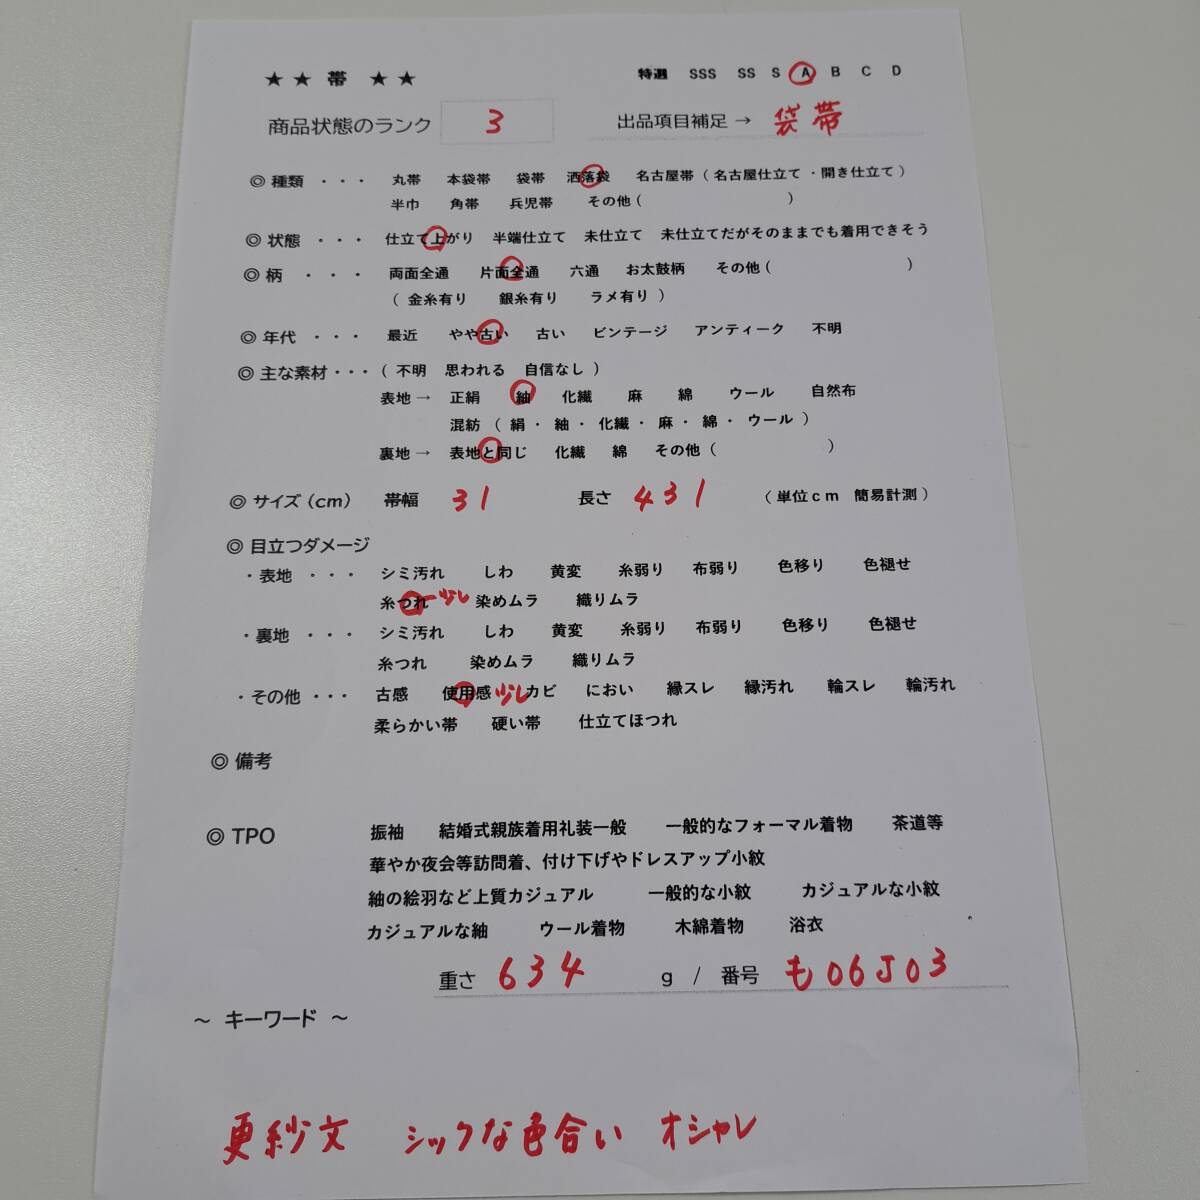 ★ ★ 帯 ★ ★
特選 SSS SS S A B C D
商品状態のランク 3 出品項目補足 → 袋帯
◎ 種類 ・・・ 丸帯 本袋帯 袋帯 洒落袋 名古屋帯 ( 名古屋仕立て ・開き仕立て )
半巾 角帯 兵児帯 その他 ( )
◎ 状態 ・・・ 仕立て上がり 半端仕立て 未仕立て 未仕立てだがそのままでも着用できそう
◎ 柄 ・・・ 両面全通 片面全通 六通 お太鼓柄 その他 ( )
( 金糸有り 銀糸有り ラメ有り )
◎ 年代 ・・・ 最近 やや古い 古い ビンテージ アンティーク 不明
◎ 主な素材・・・ ( 不明 思われる 自信なし )
表地 → 正絹 紬 化繊 麻 綿 ウール 自然布
混紡 ( 絹・ 紬・ 化繊・ 麻・ 綿・ ウール )
裏地 → 表地と同じ 化繊 綿 その他 ( )
◎ サイズ (cm) 帯幅 31 長さ 431 ( 単位cm 簡易計測 )
◎ 目立つダメージ
・表地 ・・・ シミ汚れ しわ 黄変 糸弱り 布弱り 色移り 色褪せ
糸つれ 少し 染めムラ 織りムラ
・裏地 ・・・ シミ汚れ しわ 黄変 糸弱り 布弱り 色移り 色褪せ
糸つれ 染めムラ 織りムラ
・その他 ・・・ 古感 使用感 少し カビ におい 縁スレ 縁汚れ 輪スレ 輪汚れ
柔らかい帯 硬い帯 仕立てほつれ
◎ 備考
◎ TPO 振袖 結婚式親族着用礼装一般 一般的なフォーマル着物 茶道等
華やか夜会等訪問着、付け下げやドレスアップ小紋
紬の絵羽など上質カジュアル 一般的な小紋 カジュアルな小紋
カジュアルな紬 ウール着物 木綿着物 浴衣
重さ 634 g / 番号 も06J03
～ キーワード ～
更紗文 シックな色合い オシャレ